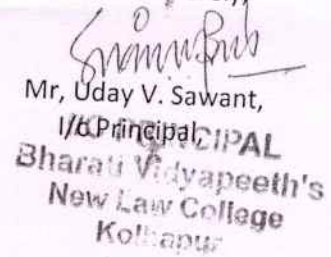 Mr, Uday V. Sawant,
I/c Principal,
I/C PRINCIPAL
Bharati Vidyapeeth's
New Law College
Kolhapur